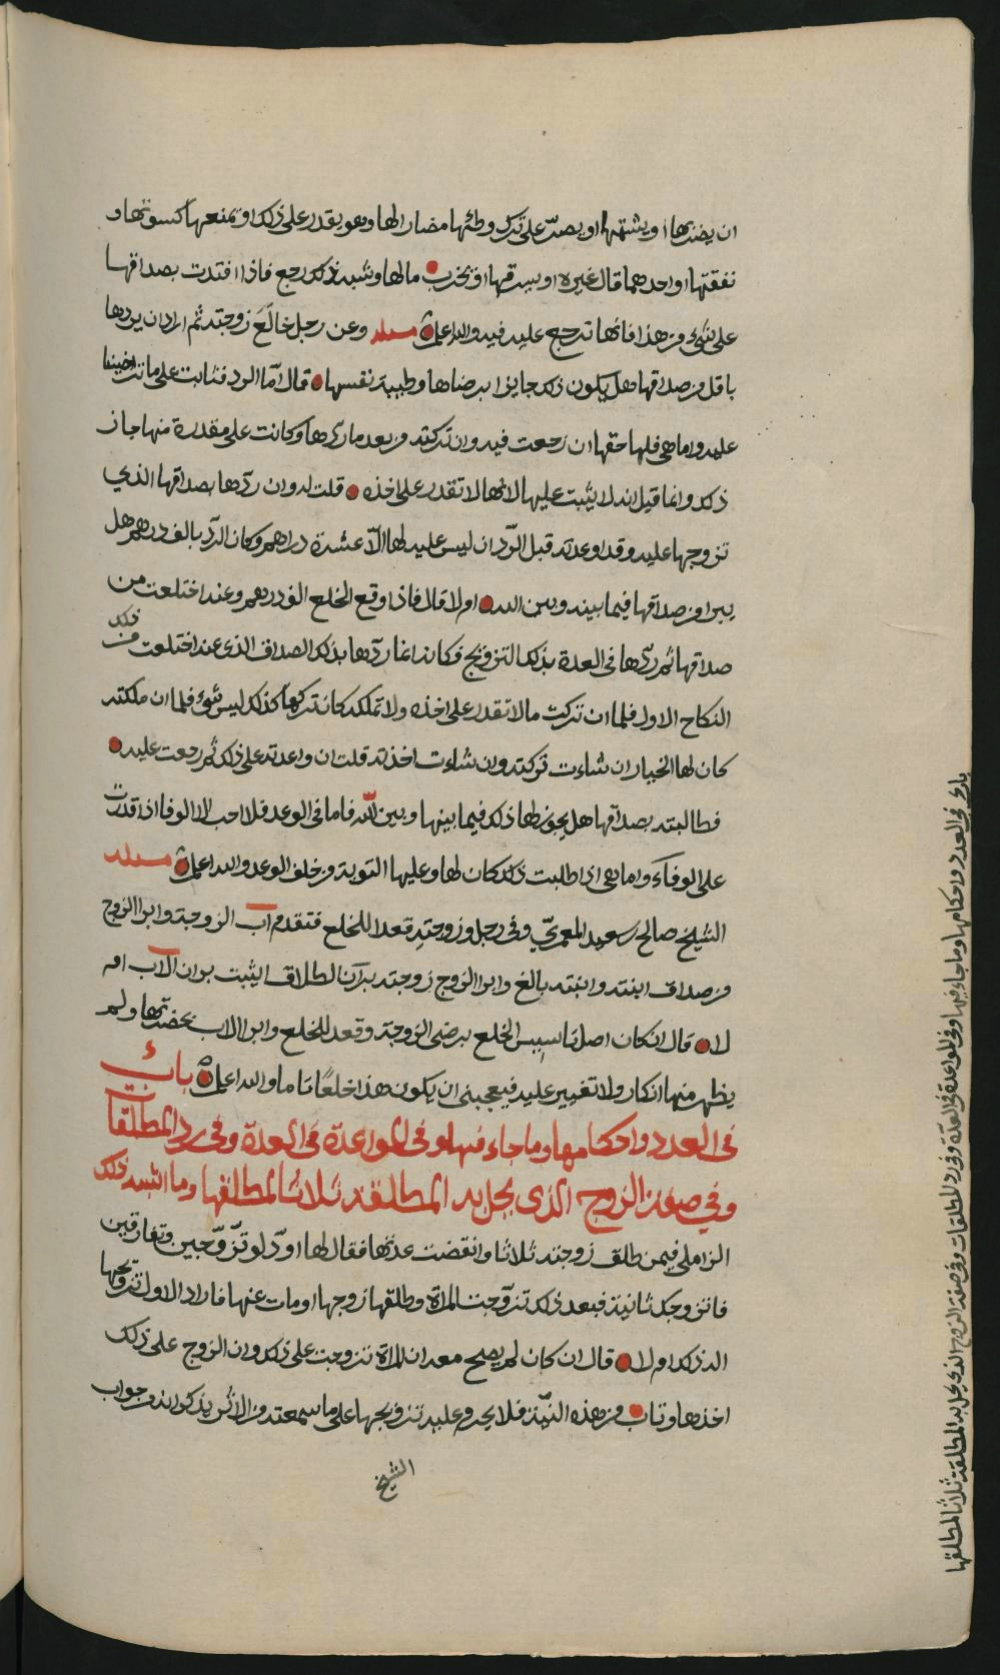 ان يضربها او يشتمها او يصرّ على ترك وطئها مضارا لها وهو يقدر على ذلك او يمنعها كسوتها و
نفقتها او احدهما قال غيره او يسرقها او يخرب مالها وشبه ذلك رجع فاذا افتدت بصداقها
على شيء من هذا فانها ترجع عليه فيه والله اعلم مسئلة وعن رجل خالع زوجته ثم اراد ان يردها
باقل من صداقها هل يكون ذلك جايزا برضاها وطيبة نفسها قال امّا الرد فثابت على ما تراضينا
عليه واما هي فلها حقها ان رجعت فيه وان تركته من بعد ما ردها وكانت على مقدرة منها جاز
ذلك وانما قيل انه لا يثبت عليها لانها لا تقدر على اخذه قلت له وان ردّها بصداقها الذي
تزوجها عليه وقد اوعدته قبل الرّد ان ليس عليه لها الّا عشرة دراهم وكان الرّد بالف درهم هل
يبرا من صداقها فيما بينه وبين الله ام لا قال فاذا وقع الخلع الف درهم وعنه اختلعت من
صداقها ثم ردّها في العدة بذلك التزويج فكانه انما ردّها بذلك الصداق الذي عنه اختلعت من ذلك
النكاح الاول فلما ان تركت ما لا تقدر على اخذه ولا تملكه كان تركها كذلك ليس شيء فلما ان ملكته
كان لها الخيار ان شاءت تركته وان شاءت اخذته قلت ان واعدته على ذلك ثم رجعت عليه
فطالبته بصداقها هل يجوز لها ذلك فيما بينها وبين الله فاما في الوعد فلا احب الا الوفا اذا قدرت
على الوفاء واما هي اذا طلبت ذلك كان لها وعليها التوبة من خلف الوعد والله اعلم مسئلة
الشيخ صالح بن سعيد المعمريّ وفي رجل وزوجته قعدا للخلع فتقدم اب الزوجة وابرا الزوج
من صداق ابنته وابنته بالغ وابرا الزوج زوجته برآن الطلاق ايثبت بران الاب ام
لا قال ان كان اصل تاسيس الخلع برضى الزوجة وقعد للخلع وابرا الاب بحضرتها ولم
يظهر منها انكار ولا تغيير عليه فيعجبني ان يكون هذا خلعًا تاما والله اعلم باب
في العدد واحكامها وما جاء فيها وفي المواعدة في العدة وفي رد المطلقات
وفي صفة الزوج الذي يحل به المطلقة ثلاثا لمطلقها وما اشبه ذلك
الزاملي فيمن طلق زوجته ثلاثا وانقضت عدتها فقال لها اودّ لو تزّوّجين وتفارقين
فاتزوجك ثانية فبعد ذلك تزوجت المرأة وطلقها زوجها او مات عنها فاراد الاول تزويجها
اله ذلك ام لا قال ان كان لم يصح معه ان المراة تزوجت على ذلك وان الزوج على ذلك
اخذها وتاب من هذه النيّة فلا يحرم عليه تزويجها على ما سمعته من الاثر يذكر انه من جواب
الشيخ
باب في العدد واحكامها وما جاء فيها وفي المواعدة في العدّة وفي رد المطلقات وفي صفة الزوج الذي يحل به المطلقة ثلاثا لمطلقها